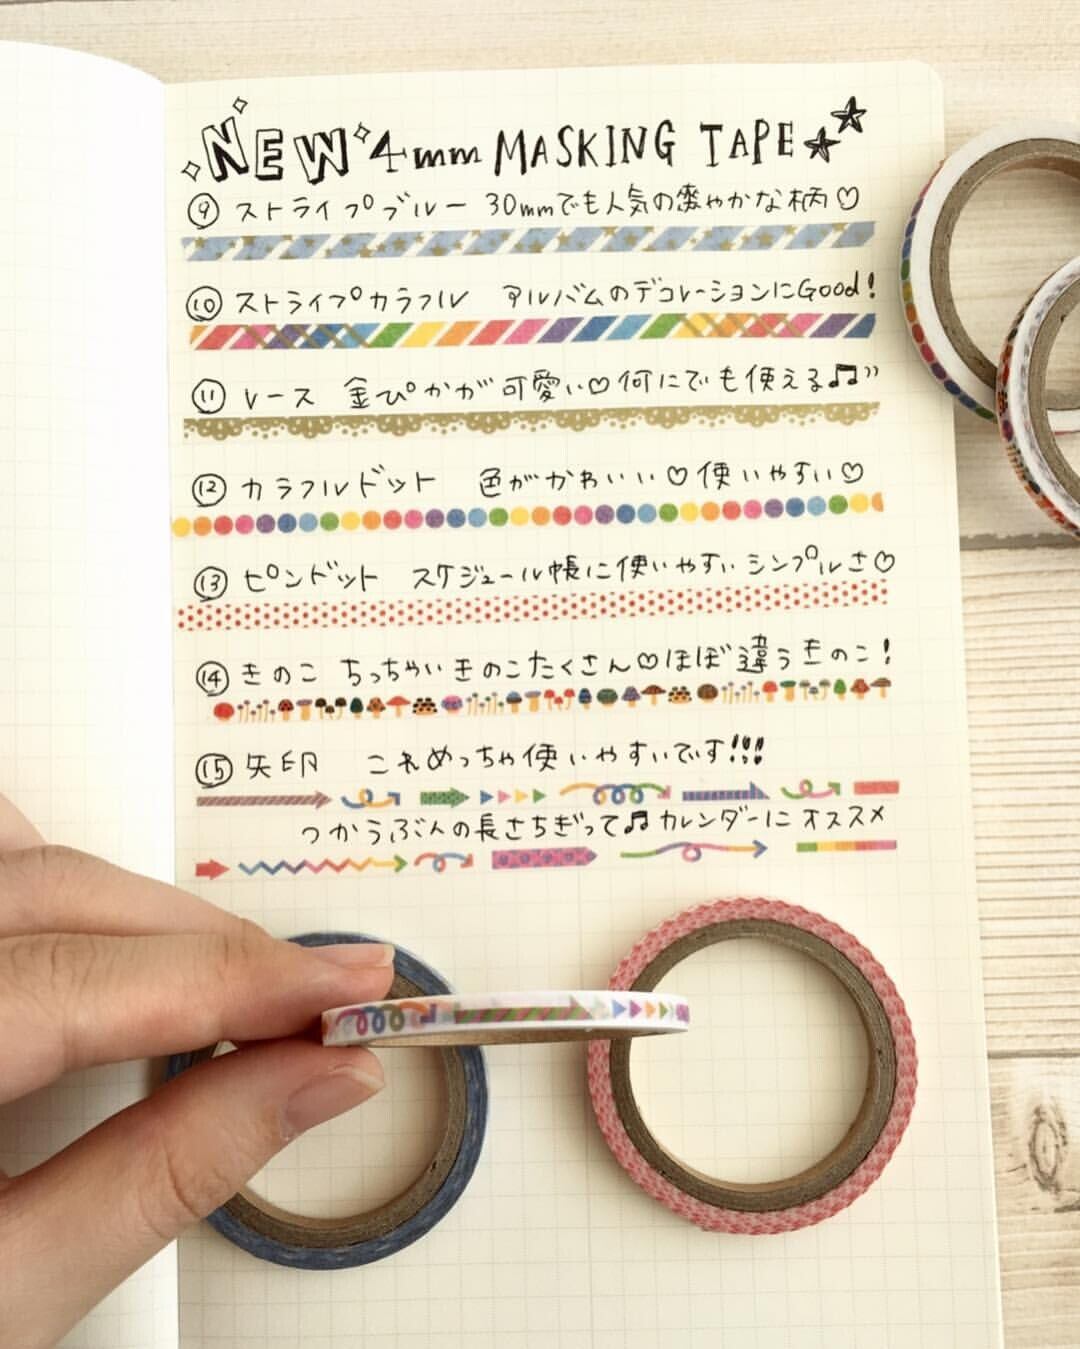 NEW 4mm MASKING TAPE★★
⑨ ストライプブルー 30mmでも人気の爽やかな柄♡
⑩ ストライプカラフル アルバムのデコレーションにGood!
⑪ レース 金ぴかが可愛い♡何にでも使える♫"
⑫ カラフルドット 色がかわいい♡使いやすい♡
⑬ ピンドット スケジュール帳に使いやすいシンプルさ♡
⑭ きのこ ちっちゃいきのこたくさん♡ほぼ違うきのこ!
⑮ 矢印 これめっちゃ使いやすいです!!!
つかうぶんの長さちぎって♫カレンダーにオススメ